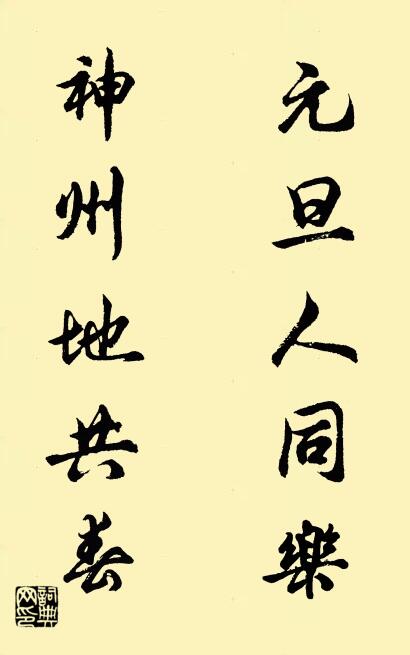 元旦人同樂
神州地共春
詞典網印